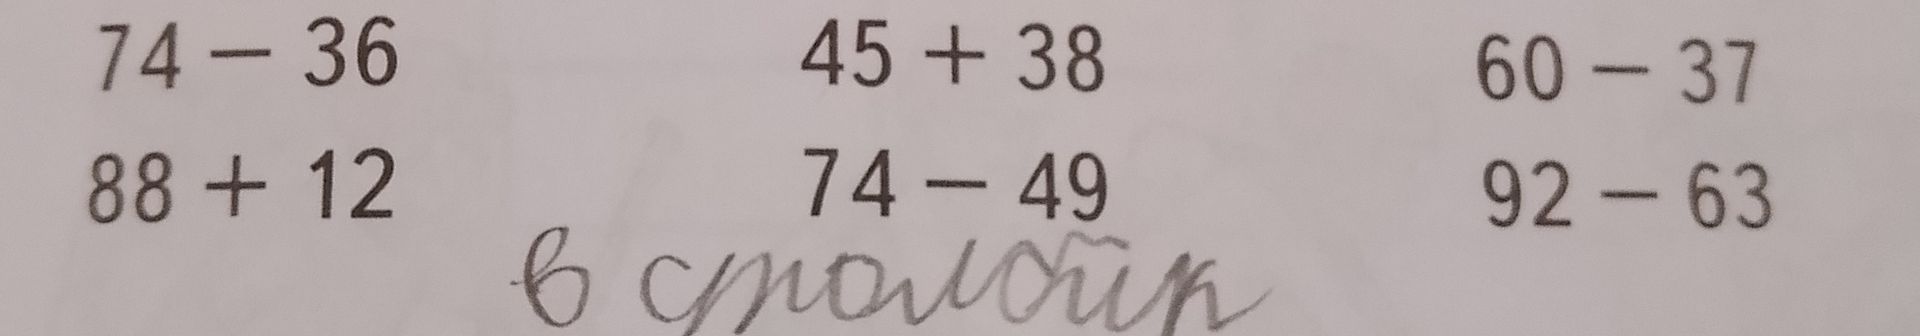 74 − 36 45 + 38 60 − 37
88 + 12 74 − 49 92 − 63
в столбик